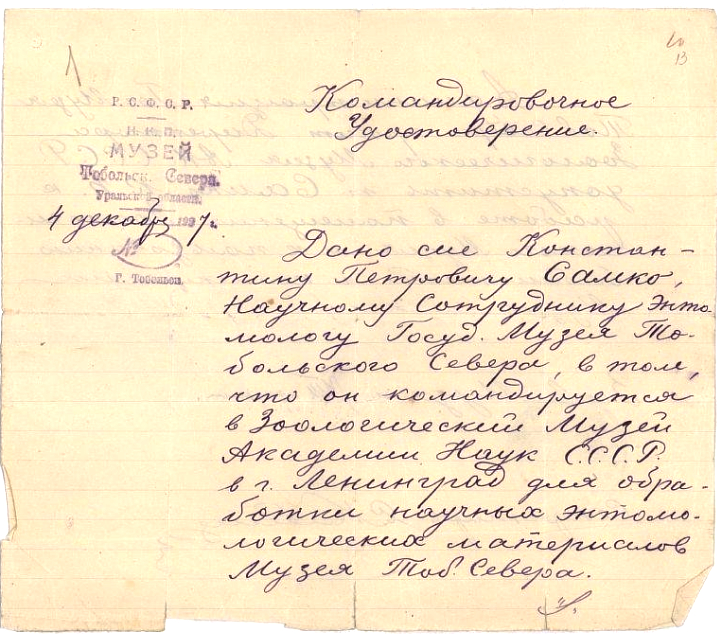 10
13
Р. С. Ф. С. Р.
Н. К. П.
МУЗЕЙ
Тобольск. Севера.
Уральской области.
4 декабр 1927 г.
№
Г. Тобольск
Командировочное
Удостоверение.
Дано сие Констан-
тину Петровичу Самко,
Научному Сотруднику Энто-
мологу Госуд. Музея То-
больского Севера, в том,
что он командируется
в Зоологический Музей
Академии Наук С.С.С.Р.
в г. Ленинград для обра-
ботки научных энтомо-
логических материалов
Музея Тоб. Севера.